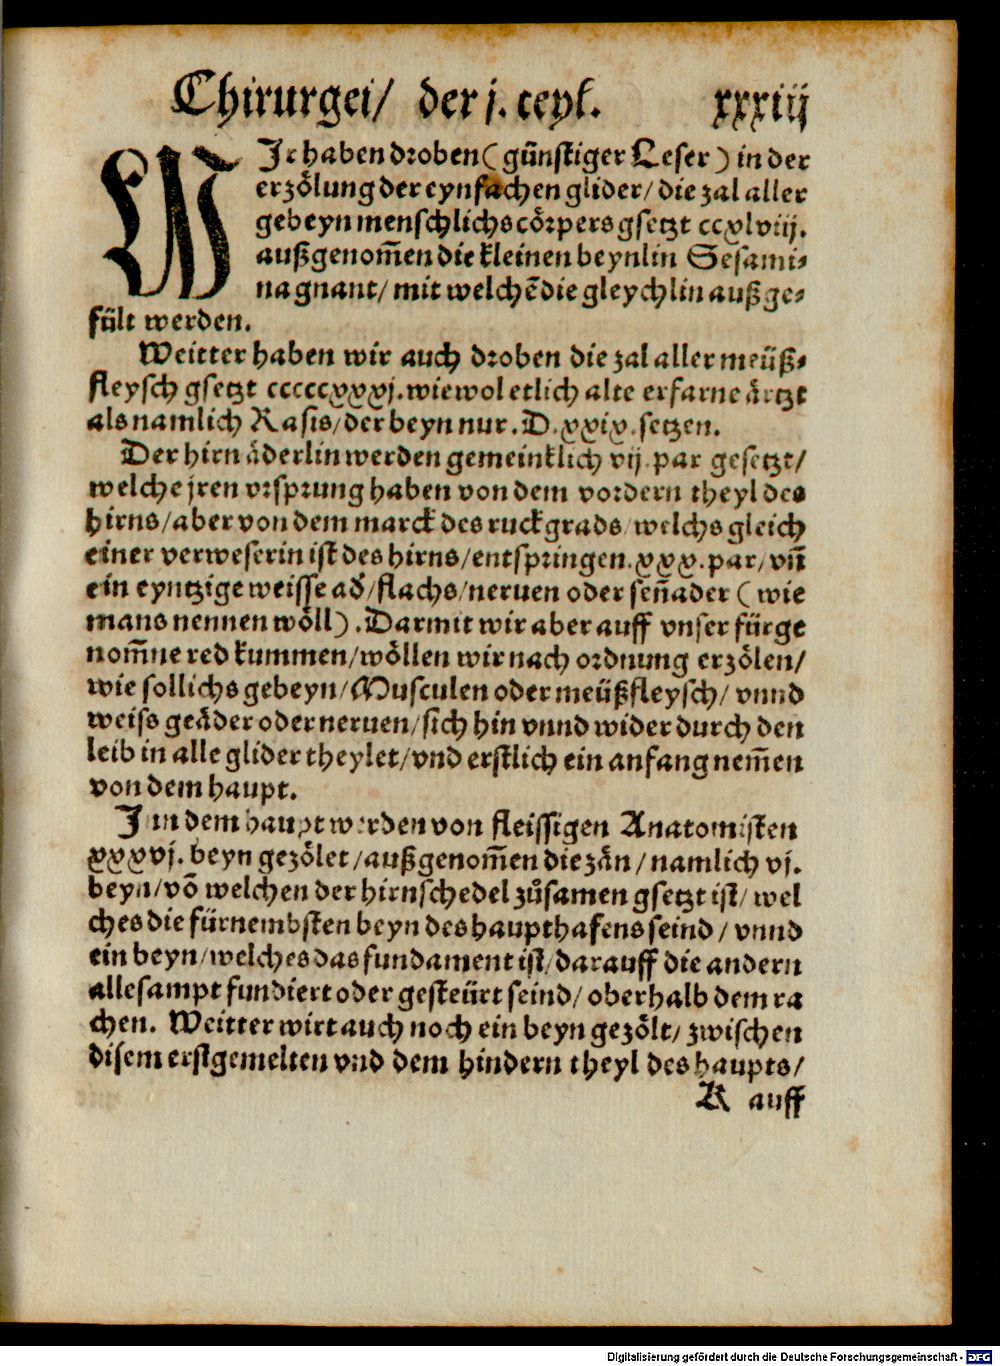 Chirurgei/ der j. teyl. xxxiij
WIr haben droben (günstiger Leser) in der
erzölung der eynfachen glider/ die zal aller
gebeyn menschlichs cörpers gsetzt ccxlviij.
außgenom̃en die kleinen beynlin Sesami⸗
na gnant/ mit welchẽ die gleychlin außge⸗
fült werden.
Weitter haben wir auch droben die zal aller meüß⸗
fleysch gsetzt cccccxxxj. wiewol etlich alte erfarne ärtzt
als namlich Rasis/ der beyn nur .D.xxix. setzen.
Der hirn äderlin werden gemeinklich vij. par gesetzt/
welche jren vrsprung haben von dem vordern theyl des
hirns/ aber von dem marck des ruckgrads/ welchs gleich
einer verweserin ist des hirns/ entspringen .xxx. par/ vñ
ein eyntzige weisse ad/ flachs/ neruen oder señader (wie
mans nennen wöll). Darmit wir aber auff vnser fürge
nom̃ne red kummen/ wöllen wir nach ordnung erzölen/
wie sollichs gebeyn/ Musculen oder meüßfleysch/ vnnd
weiss geäder oder neruen/ sich hin vnnd wider durch den
leib in alle glider theylet/ vnd erstlich ein anfang nem̃en
von dem haupt.
In dem haupt werden von fleissigen Anatomisten
xxxvj. beyn gezölet/ außgenom̃en die zän/ namlich vj.
beyn/ võ welchen der hirnschedel zůsamen gsetzt ist/ wel
ches die fürnembsten beyn des haupthafens seind/ vnnd
ein beyn/ welches das fundament ist/ darauff die andern
allesampt fundiert oder gesteürt seind/ oberhalb dem ra
chen. Weitter wirt auch noch ein beyn gezölt/ zwischen
disem erstgemelten vnd dem hindern theyl des haupts/
K auff
Digitalisierung gefördert durch die Deutsche Forschungsgemeinschaft - DFG